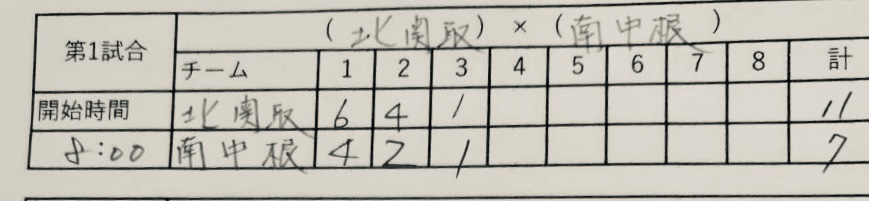 第1試合 (北関取) × (南中根)
チーム 1 2 3 4 5 6 7 8 計
開始時間 北関取 6 4 1 11
8:00 南中根 4 2 1 7